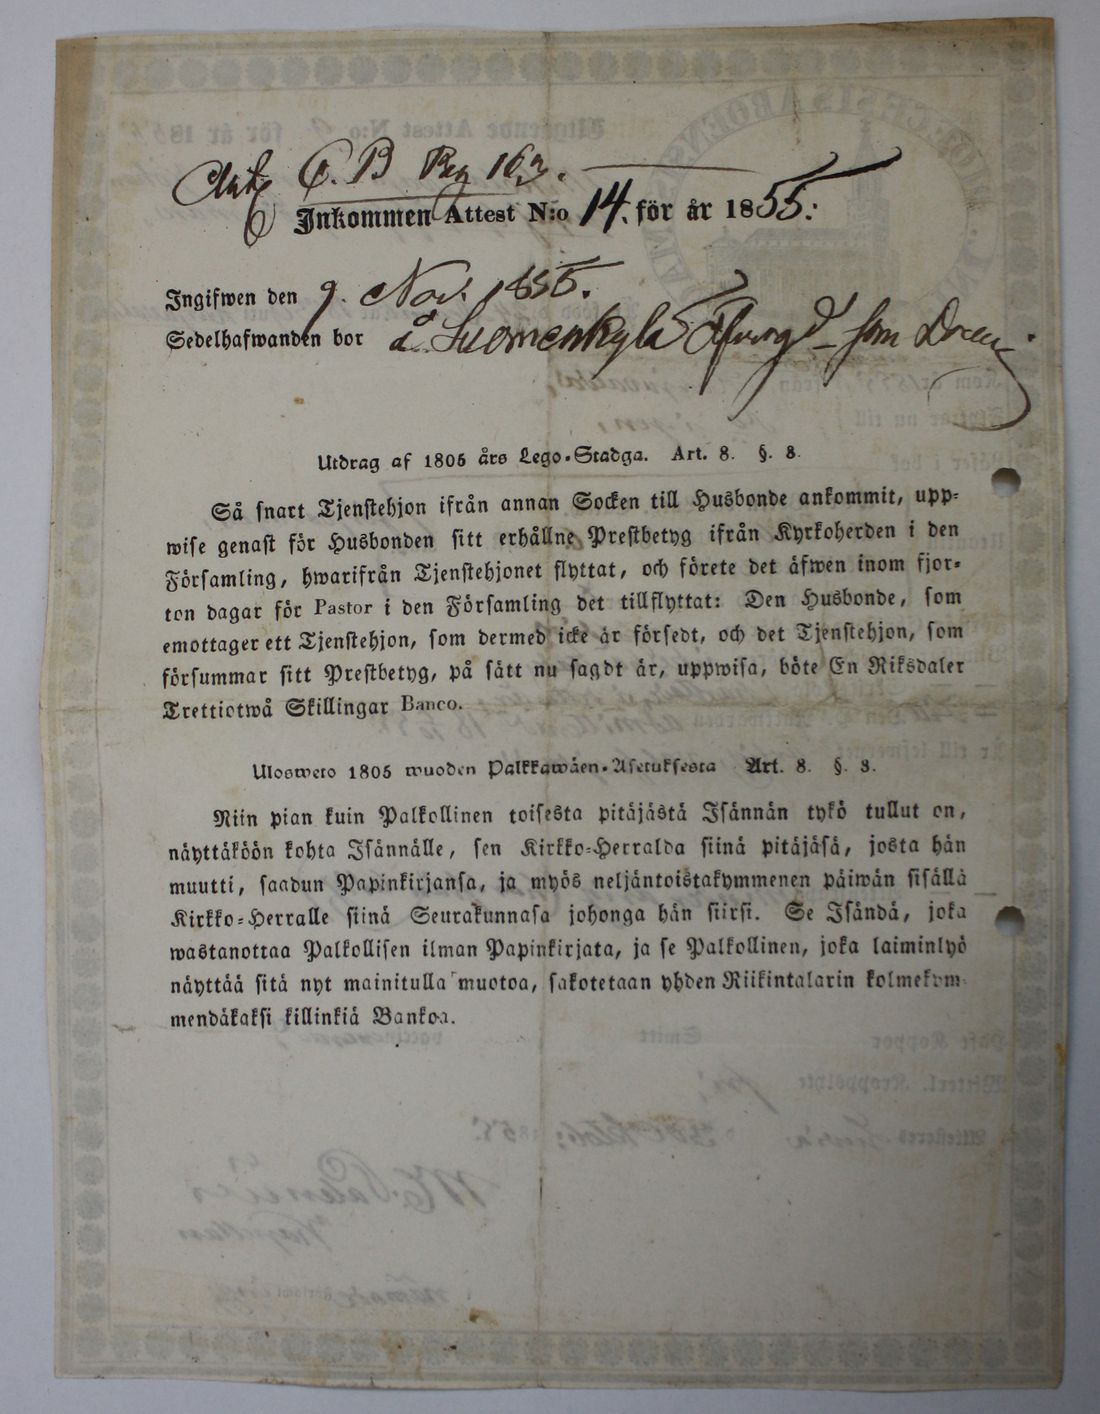 C. B Pag 163.
Inkommen Attest N:o 14. för år 1855.
Ingifwen den 9. Nov. 1855.
Sedelhafwanden bor å Suomenkylä som Dreng
Utdrag af 1805 års Lego-Stadga. Art. 8. §. 8.
Så snart Tjenstehjon ifrån annan Socken till Husbonde ankommit, upp-
wise genast för Husbonden sitt erhållne Prestbetyg ifrån Kyrkoherden i den
Församling, hwarifrån Tjenstehjonet flyttat, och förete det äfwen inom fjor-
ton dagar för Pastor i den Församling det tillflyttat: Den Husbonde, som
emottager ett Tjenstehjon, som dermed icke är försedt, och det Tjenstehjon, som
försummar sitt Prestbetyg, på sätt nu sagdt är, uppwisa, böte En Riksdaler
Trettiotwå Skillingar Banco.
Ulosweto 1805 wuoden Palkkawäen-Asetuksesta Art. 8. §. 8.
Niin pian kuin Palkollinen toisesta pitäjästä Isännän tykö tullut on,
näyttäköön kohta Isännälle, sen Kirkko-Herralda siinä pitäjäsä, josta hän
muutti, saadun Papinkirjansa, ja myös neljäntoistakymmenen päiwän sisällä
Kirkko-Herralle siinä Seurakunnasa johonga hän siirsi. Se Isändä, joka
wastanottaa Palkollisen ilman Papinkirjata, ja se Palkollinen, joka laiminlyö
näyttää sitä nyt mainitulla muotoa, sakotetaan yhden Riikintalarin kolmekym
mendäkaksi killinkiä Bankoa.